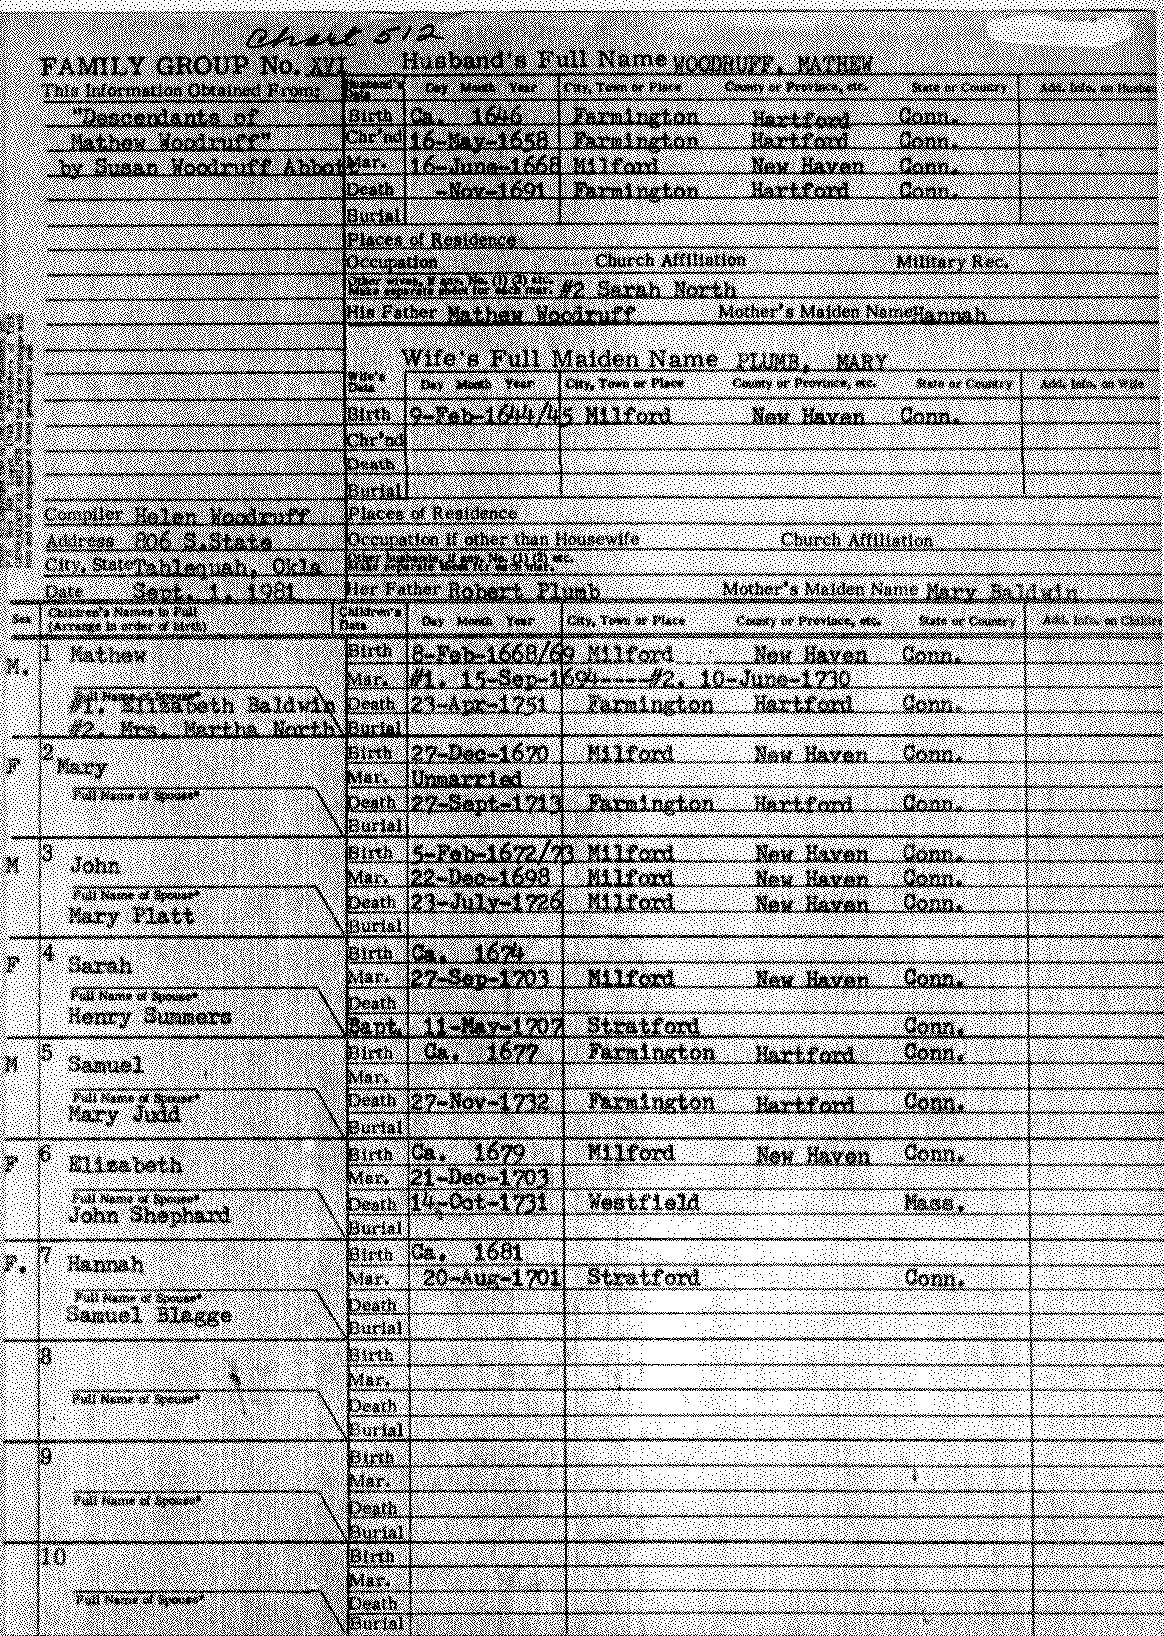 Chart 512
FAMILY GROUP No. XVI Husband's Full Name WOODRUFF, MATHEW
This Information Obtained From: Husband's Data Day Month Year City, Town or Place County or Province, etc. State or Country Add. Info. on Husband
"Descendants of Birth Ca. 1646 Farmington Hartford Conn.
Mathew Woodruff" Chr'nd 16-May-1658 Farmington Hartford Conn.
by Susan Woodruff Abbott Mar. 16-June-1668 Milford New Haven Conn.
Death -Nov-1691 Farmington Hartford Conn.
Burial
Places of Residence
Occupation Church Affiliation Military Rec.
Other wives, if any, No. (1) (2) etc.
Make separate sheet for each mar. #2 Sarah North
His Father Mathew Woodruff Mother's Maiden Name Hannah
Wife's Full Maiden Name PLUMB, MARY
Wife's Data Day Month Year City, Town or Place County or Province, etc. State or Country Add. Info. on Wife
Birth 9-Feb-1644/45 Milford New Haven Conn.
Chr'nd
Death
Burial
Compiler Helen Woodruff Places of Residence
Address 806 S.State Occupation if other than Housewife Church Affiliation
City, State Tahlequah, Okla Other husbands, if any, No. (1) (2) etc.
Make separate sheet for each mar.
Date Sept. 1, 1981 Her Father Robert Plumb Mother's Maiden Name Mary Baldwin
Sex Children's Names in Full (Arrange in order of birth) Children's Data Day Month Year City, Town or Place County or Province, etc. State or Country Add. Info. on Children
M. 1 Mathew Birth 8-Feb-1668/69 Milford New Haven Conn.
Mar. #1. 15-Sep-1694----#2. 10-June-1730
Full Name of Spouse*
#1. Elizabeth Baldwin Death 23-Apr-1751 Farmington Hartford Conn.
#2. Mrs. Martha North Burial
F 2 Mary Birth 27-Dec-1670 Milford New Haven Conn.
Mar. Unmarried
Full Name of Spouse* Death 27-Sept-1713 Farmington Hartford Conn.
Burial
M 3 John Birth 5-Feb-1672/73 Milford New Haven Conn.
Mar. 22-Dec-1698 Milford New Haven Conn.
Full Name of Spouse* Death 23-July-1726 Milford New Haven Conn.
Mary Platt Burial
F 4 Sarah Birth Ca. 1674
Mar. 27-Sep-1703 Milford New Haven Conn.
Full Name of Spouse* Death
Henry Summers Bapt. 11-May-1707 Stratford Conn.
M 5 Samuel Birth Ca. 1677 Farmington Hartford Conn.
Mar.
Full Name of Spouse* Death 27-Nov-1732 Farmington Hartford Conn.
Mary Judd Burial
F 6 Elizabeth Birth Ca. 1679 Milford New Haven Conn.
Mar. 21-Dec-1703
Full Name of Spouse* Death 14-Oct-1731 Westfield Mass.
John Shephard Burial
F. 7 Hannah Birth Ca. 1681
Mar. 20-Aug-1701 Stratford Conn.
Full Name of Spouse* Death
Samuel Blagge Burial
8 Birth
Mar.
Full Name of Spouse* Death
Burial
9 Birth
Mar.
Full Name of Spouse* Death
Burial
10 Birth
Mar.
Full Name of Spouse* Death
Burial